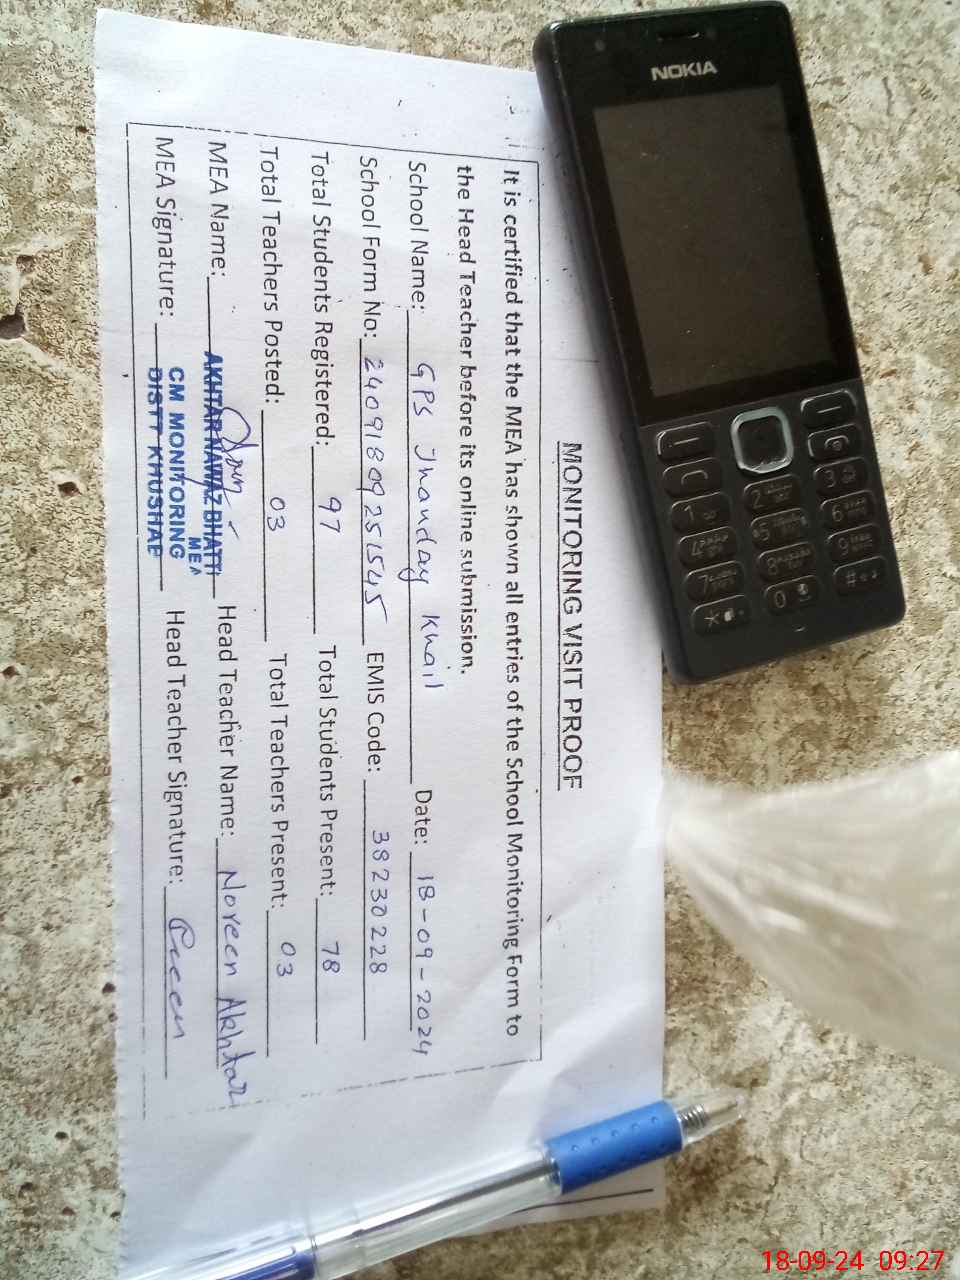 MONITORING VISIT PROOF
It is certified that the MEA has shown all entries of the School Monitoring Form to
the Head Teacher before its online submission.
School Name: GPS Jhanday Khail Date: 18-09-2024
School Form No: 24091809251545 EMIS Code: 38230228
Total Students Registered: 97 Total Students Present: 78
Total Teachers Posted: 03 Total Teachers Present: 03
MEA Name: AKHTAR NAWAZ BHATTI Head Teacher Name: Noreen Akhtar
MEA
MEA Signature: CM MONITORING Head Teacher Signature:
DISTT KHUSHAB
NOKIA
1
2
3
4
5
6
7
8
9
*
0
#
18-09-24 09:27